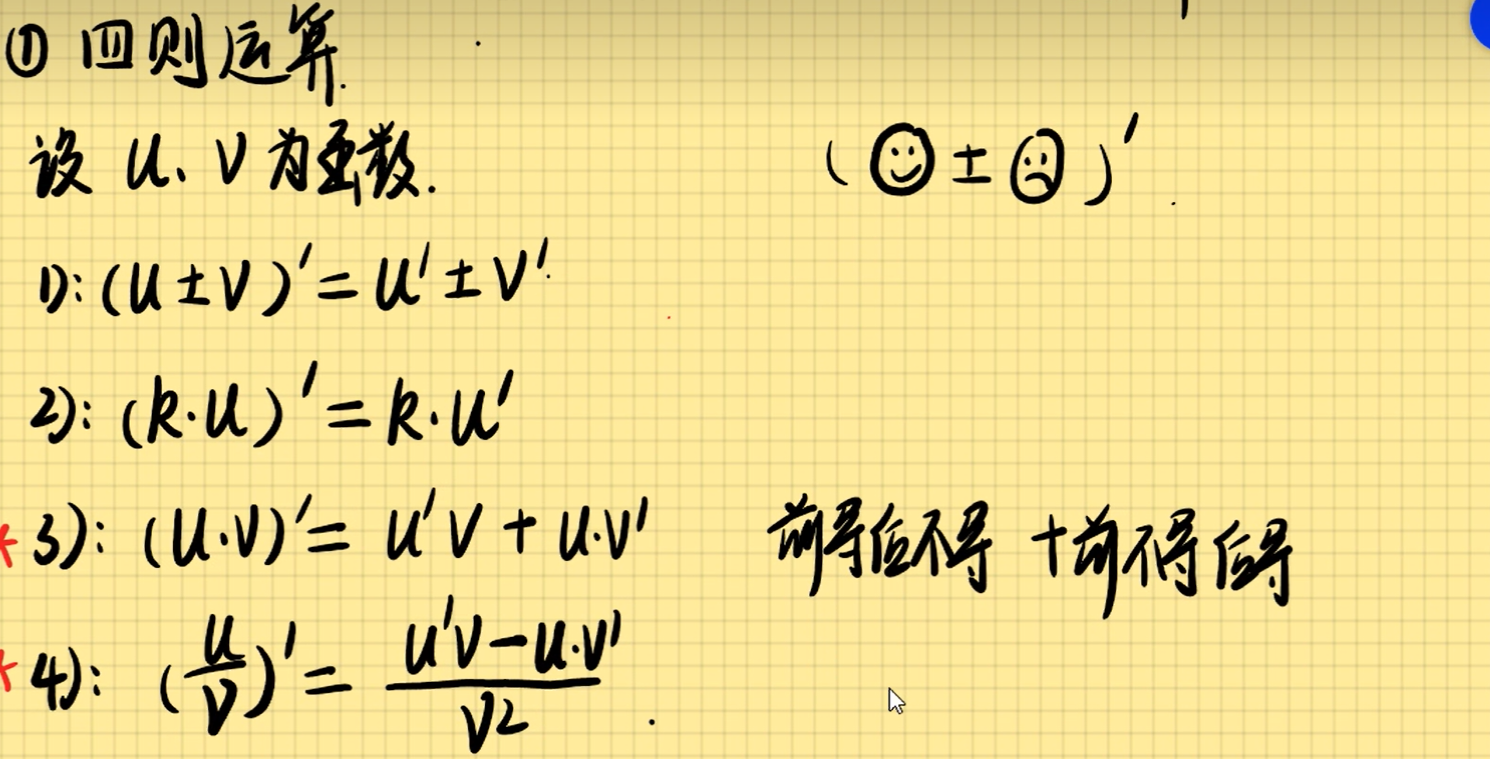 ① 四则运算.
设 u、v 为函数. (☺ ± ☹)′
1): (u ± v)′ = u′ ± v′
2): (k·u)′ = k·u′
*3): (u·v)′ = u′v + u·v′ 前导后不导 + 前不导后导
*4): (u/v)′ = (u′v − u·v′)/v²